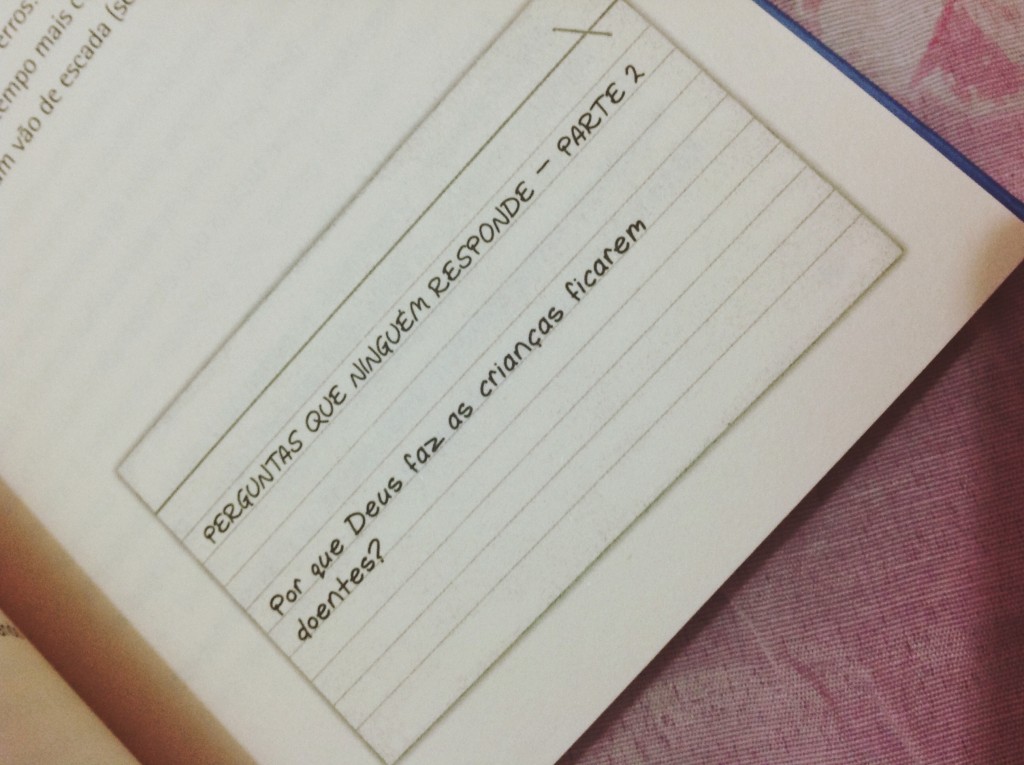 erros.
tempo mais c
m vão de escada (se
PERGUNTAS QUE NINGUÉM RESPONDE – PARTE 2
Por que Deus faz as crianças ficarem
doentes?